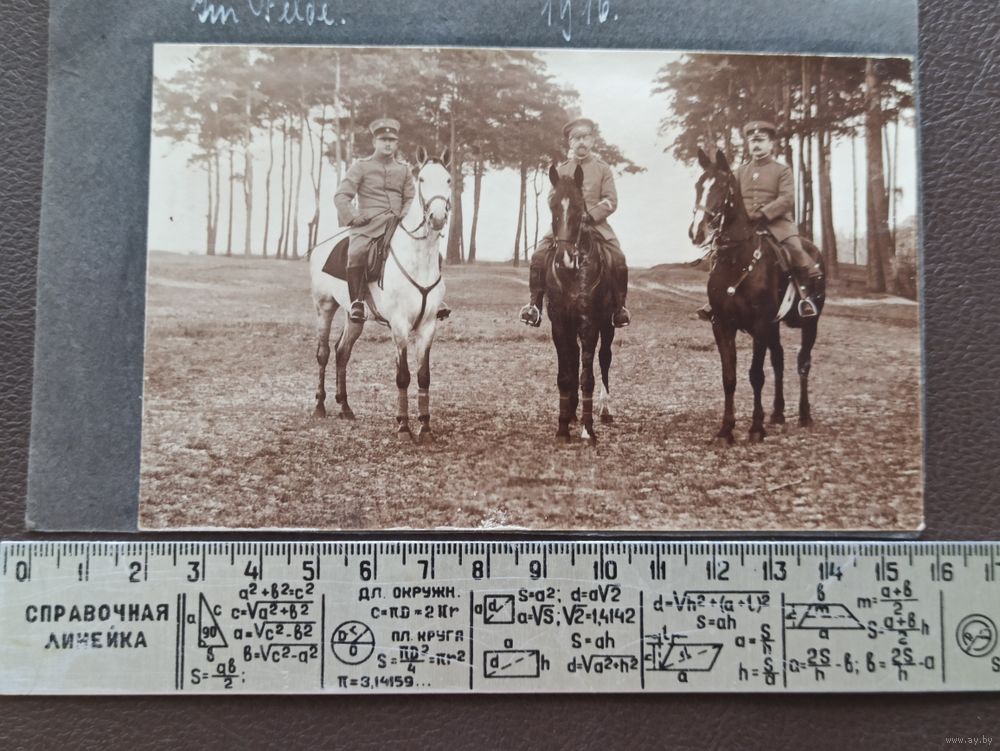 Im Felde. 1916.
0 1 2 3 4 5 6 7 8 9 10 11 12 13 14 15 16
СПРАВОЧНАЯ
ЛИНЕЙКА
a c 90 в
a²+в²=c²
c=√a²+в²
a=√c²-в²
в=√c²-a²
S=aв/2;
ДЛ. ОКРУЖН.
C=πD=2πr
ПЛ. КРУГА
S=πD²/4=πr²
π=3,14159...
D
S=a²; d=a√2
a=√S; √2=1,4142
a d
a h
S=ah
d=√a²+h²
d=√h²+(a+l)²
S=ah
a=S/h
h=S/a
l h d a
в m a
m=a+в/2
S=a+в/2 h
a=2S/h-в; в=2S/h-a
S
www.ay.by